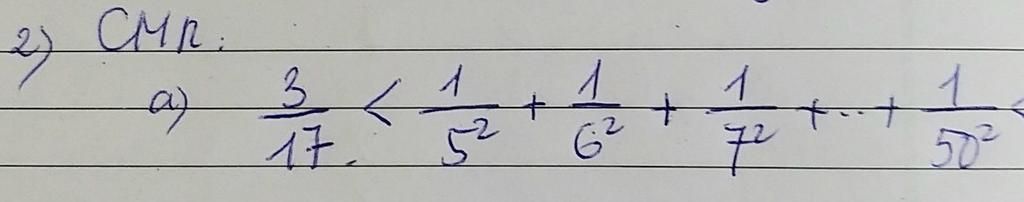 2) CMR:
a) 3/17 < 1/5² + 1/6² + 1/7² + ... + 1/50² <